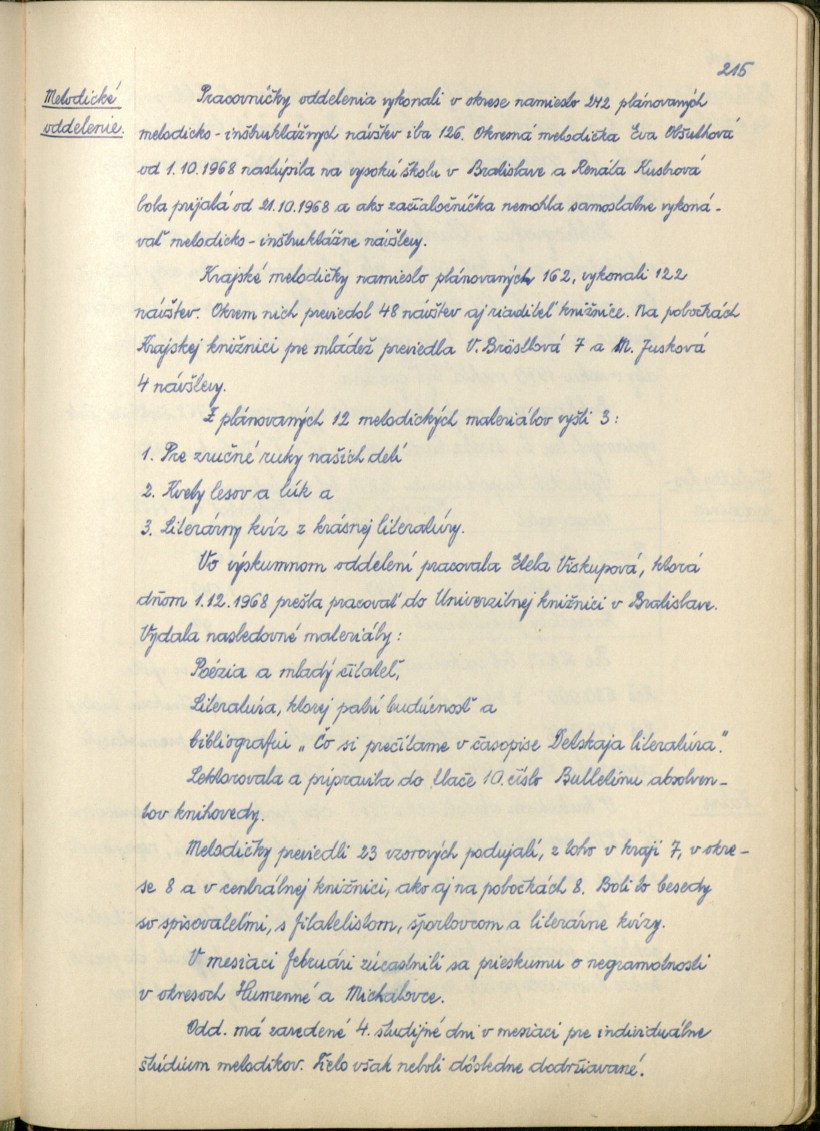 215
Metodické
oddelenie.
Pracovníčky oddelenia vykonali v okrese namiesto 242 plánovaných
metodicko-inštruktážnych návštev iba 126. Okresná metodička Eva
od 1.10.1968 nastúpila na vysokú školu v Bratislave a Renáta Kustrová
bola prijatá od 21.10.1968 a ako začiatočníčka nemohla samostatne vykoná-
vať metodicko-inštruktážne návštevy.
Krajské metodičky namiesto plánovaných 162, vykonali 122
návštev. Okrem nich previedol 48 návštev aj riaditeľ knižnice. Na pobočkách
Krajskej knižnici pre mládež previedla V. Bröstlová 7 a M. Jusková
4 návštevy.
Z plánovaných 12 metodických materiálov vyšli 3:
1. Pre zručné ruky našich detí
2. Kvety lesov a lúk a
3. Literárny kvíz z krásnej literatúry.
Vo výskumnom oddelení pracovala Hela Viskupová, ktorá
dňom 1.12.1968 prešla pracovať do Univerzitnej knižnici v Bratislave.
Vydala nasledovné materiály:
Poézia a mladý čitateľ,
Literatúra, ktorej patrí budúcnosť a
bibliografiu „Čo si prečítame v časopise Detskaja literatúra".
Lektorovala a pripravila do tlače 10. číslo Bulletinu absolven-
tov knihovedy.
Metodičky previedli 23 vzorových podujatí, z toho v kraji 7, v okre-
se 8 a v centrálnej knižnici, ako aj na pobočkách 8. Boli to besedy
so spisovateľmi, s filatelistom, športovcom a literárne kvízy.
V mesiaci februári zúčastnili sa prieskumu o negramotnosti
v okresoch Humenné a Michalovce.
Odd. má zavedené 4. študijné dni v mesiaci pre individuálne
štúdium metodikov. Tieto však neboli dôsledne dodržiavané.